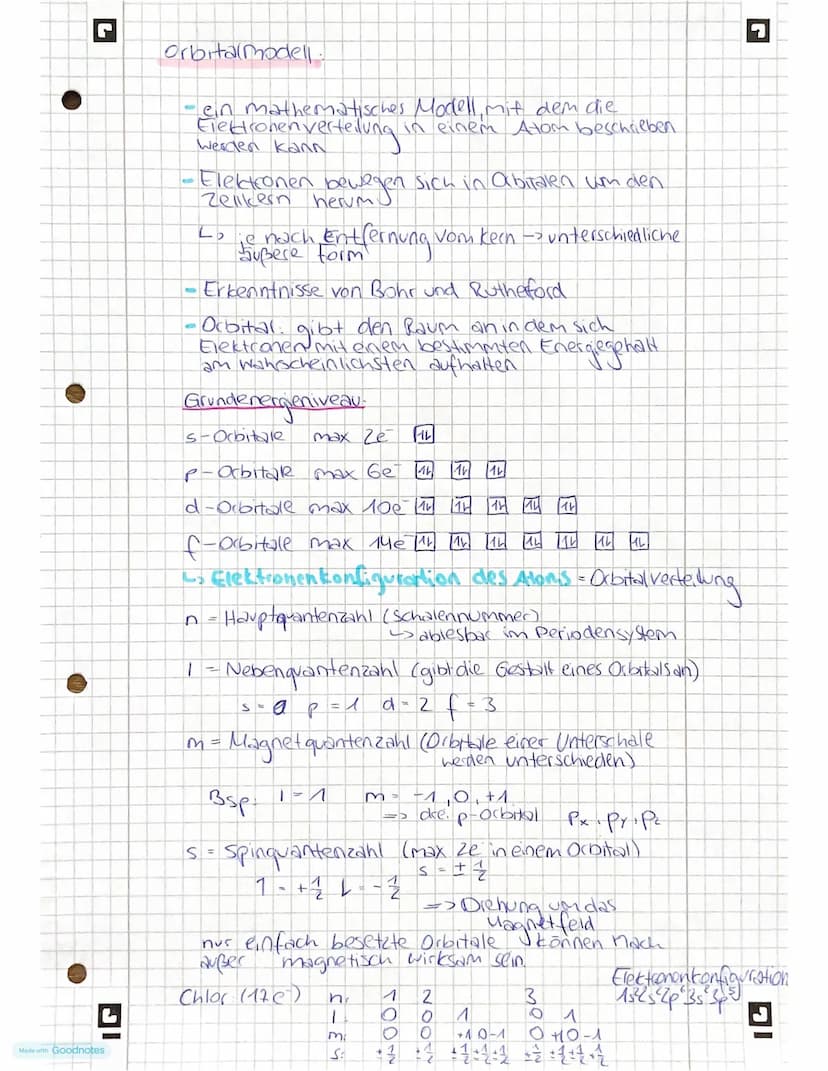 Orbitalmodell:
- ein mathematisches Modell, mit dem die
Elektronenverteilung in einem Atom beschrieben
werden kann
- Elektronen bewegen sich in Orbitalen um den
Zellkern herum
↳ je nach Entfernung vom Kern → unterschiedliche
äußere Form
- Erkenntnisse von Bohr und Rutheford
- Orbital: gibt den Raum an in dem sich
Elektronen mit einem bestimmten Energiegehalt
am wahrscheinlichsten aufhalten
Grundenergieniveau:
s-Orbitale max 2e⁻ 1↓
p-Orbitale max 6e⁻ 1↓ 1↓ 1↓
d-Orbitale max 10e⁻ 1↓ 1↓ 1↓ 1↓ 1↓
f-Orbitale max 14e⁻ 1↓ 1↓ 1↓ 1↓ 1↓ 1↓ 1↓
↳ Elektronenkonfiguration des Atoms = Orbitalverteilung
n = Hauptquantenzahl (Schalennummer)
↳ ablesbar im Periodensystem
l = Nebenquantenzahl (gibt die Gestalt eines Orbitals an)
s = 0 p = 1 d = 2 f = 3
m = Magnetquantenzahl (Orbitale einer Unterschale
werden unterschieden)
Bsp: l = 1 m = -1, 0, +1
=> drei p-Orbital Px, Py, Pz
s = Spinquantenzahl (max 2e⁻ in einem Orbital)
s = ± 1/2
1 = + 1/2 ↓ = - 1/2
=> Drehung um das
Magnetfeld
nur einfach besetzte Orbitale können nach
außer magnetisch wirksam sein.
Elektronenkonfiguration
Chlor (17e⁻) n: 1 2 3 1s²2s²2p⁶3s²3p⁵
l: 0 0 1 0 1
m: 0 0 +1 0 -1 0 +1 0 -1
s: ± 1/2 ± 1/2 ± 1/2 ± 1/2 ± 1/2 ± 1/2 ± 1/2 ± 1/2 + 1/2
Made with Goodnotes